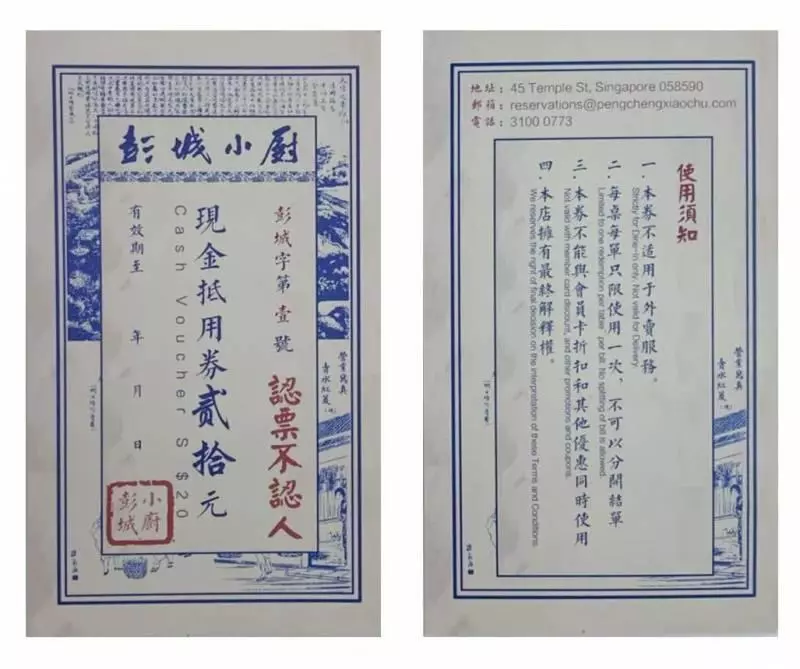 彭城小廚
彭城字第壹號
認票不認人
現金抵用券貳拾元
Cash Voucher S $20
有效期至 年 月 日
小廚
彭城
地址：45 Temple St, Singapore 058590
郵箱：reservations@pengchengxiaochu.com
電話：3100 0773
使用須知
一．本券不适用于外賣服務。
Strictly for Dine-in only. Not valid for Delivery.
二．每桌每單只限使用一次，不可以分開結單
Limited to one redemption per table, per bill. No splitting of bill is allowed.
三．本券不能與會員卡折扣和其他優惠同時使用
Not valid with member card discount, and other promotions and coupons.
四．本店擁有最終解釋權。
We reserves the right of final decision on the interpretation of these Terms and Conditions.